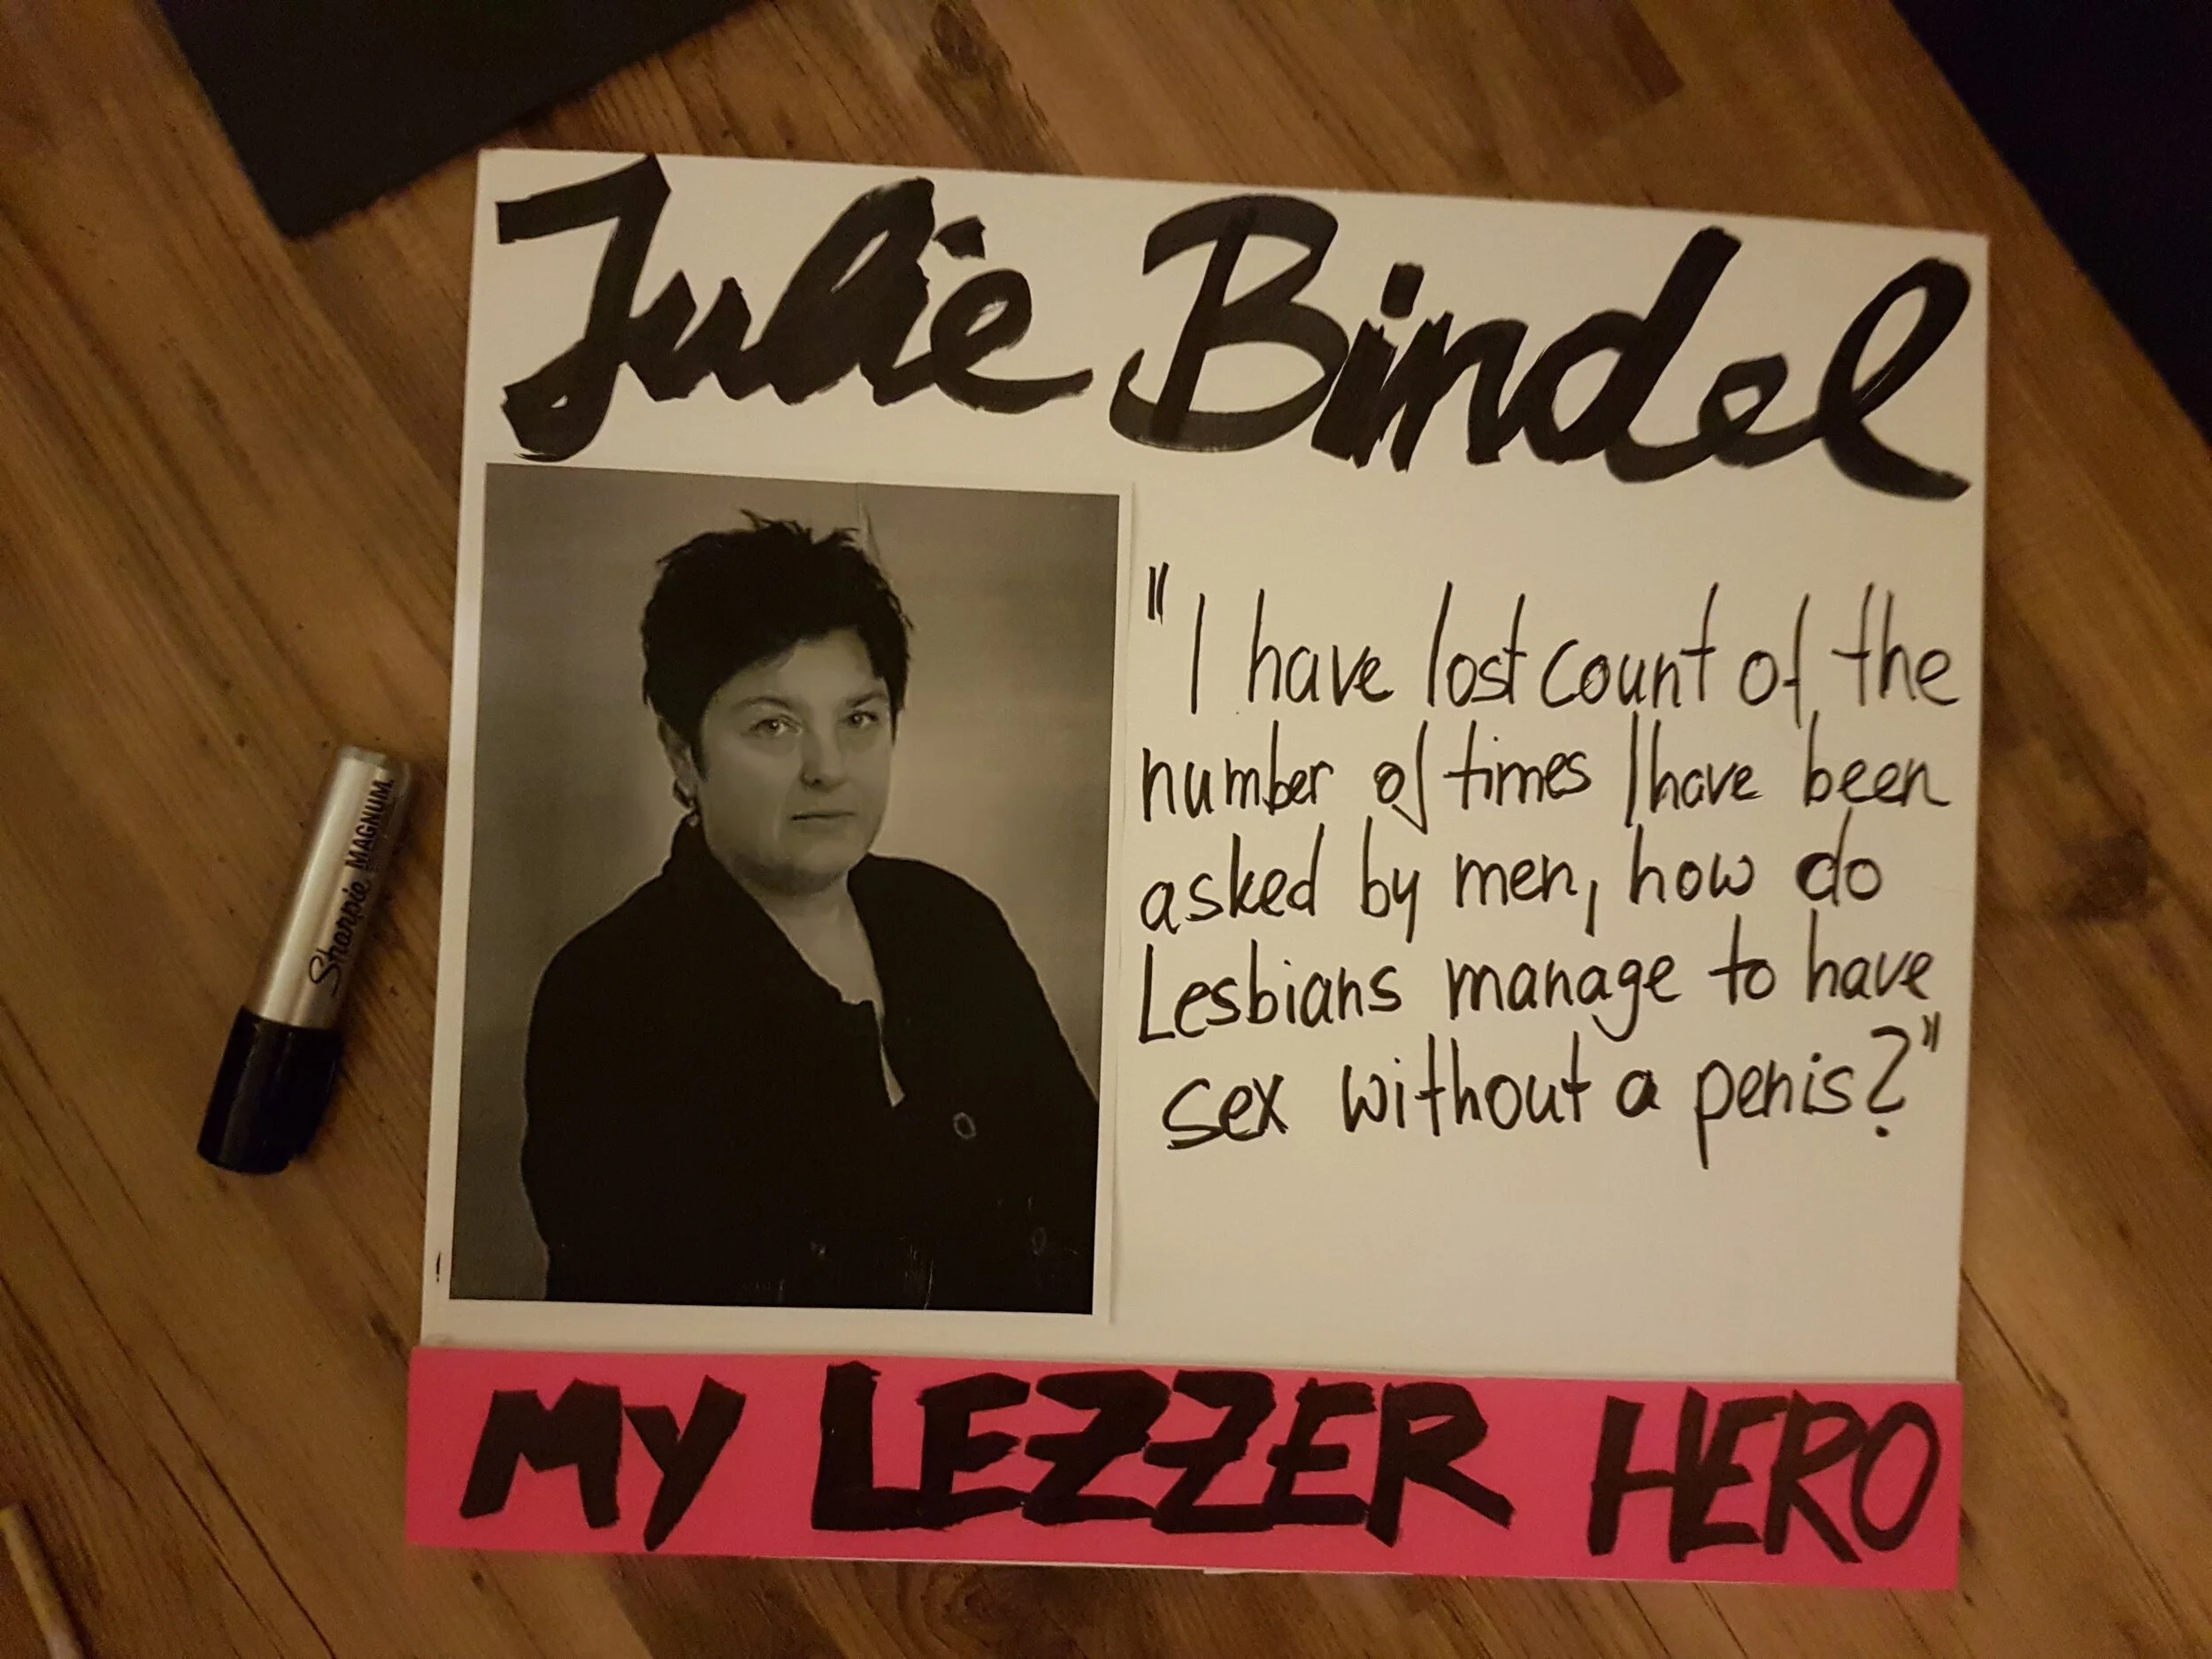 Julie Bindel
"I have lost count of the
number of times I have been
asked by men, how do
Lesbians manage to have
sex without a penis?"
MY LEZZER HERO
Sharpie MAGNUM